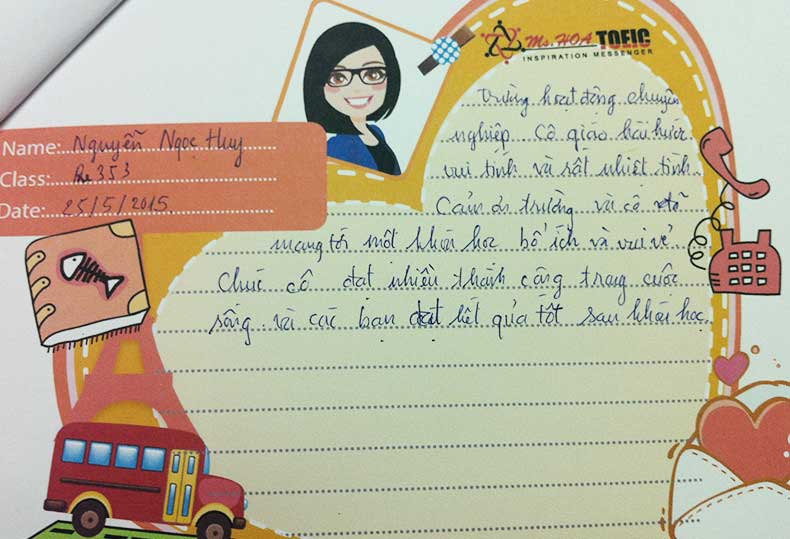 Ms. HOA TOEIC
INSPIRATION MESSENGER
Name: Nguyễn Ngọc Huy
Class: Re 353
Date: 25/5/2015
Trường hoạt động chuyên
nghiệp. Cô giáo hài hước
vui tính và rất nhiệt tình.
Cảm ơn trường và cô đã
mang tới một khóa học bổ ích và vui vẻ
Chúc cô đạt nhiều thành công trong cuộc
sống. và các bạn đạt kết qủa tốt sau khóa học